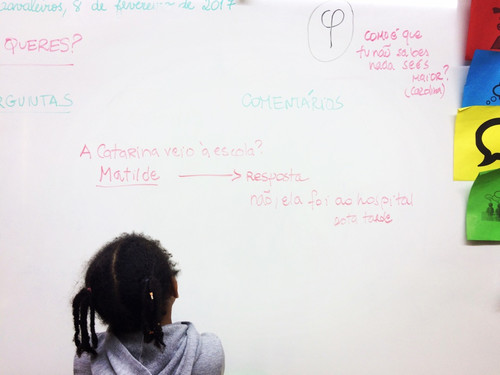 8 de fevereiro de 2017
QUERES?
φ
COMO É QUE
tu não sabes
nada seres
MAIOR?
(CAROLINA)
PERGUNTAS
COMENTÁRIOS
A Catarina veio à escola?
Matilde → Resposta
não, ela foi ao hospital
esta tarde